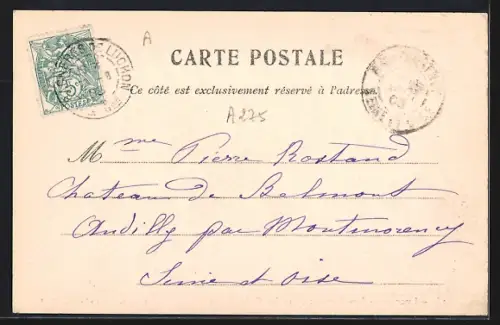 A
BAGNÈRES DE LUCHON
5
CARTE POSTALE
Ce côté est exclusivement réservé à l'adresse
A275
Mme Pierre Rostand
Chateau de Belmont
Andilly par Montmorency
Seine et Oise